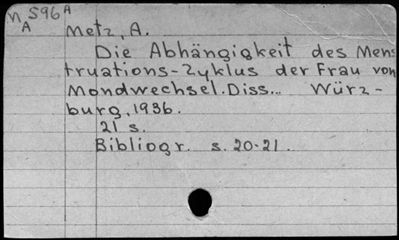 n S96 A
A
Metz, A.
Die Abhängigkeit des Mens
truations-Zyklus der Frau von
Mondwechsel. Diss... Würz-
burg, 1936.
21 s.
Bibliogr. s. 20-21.